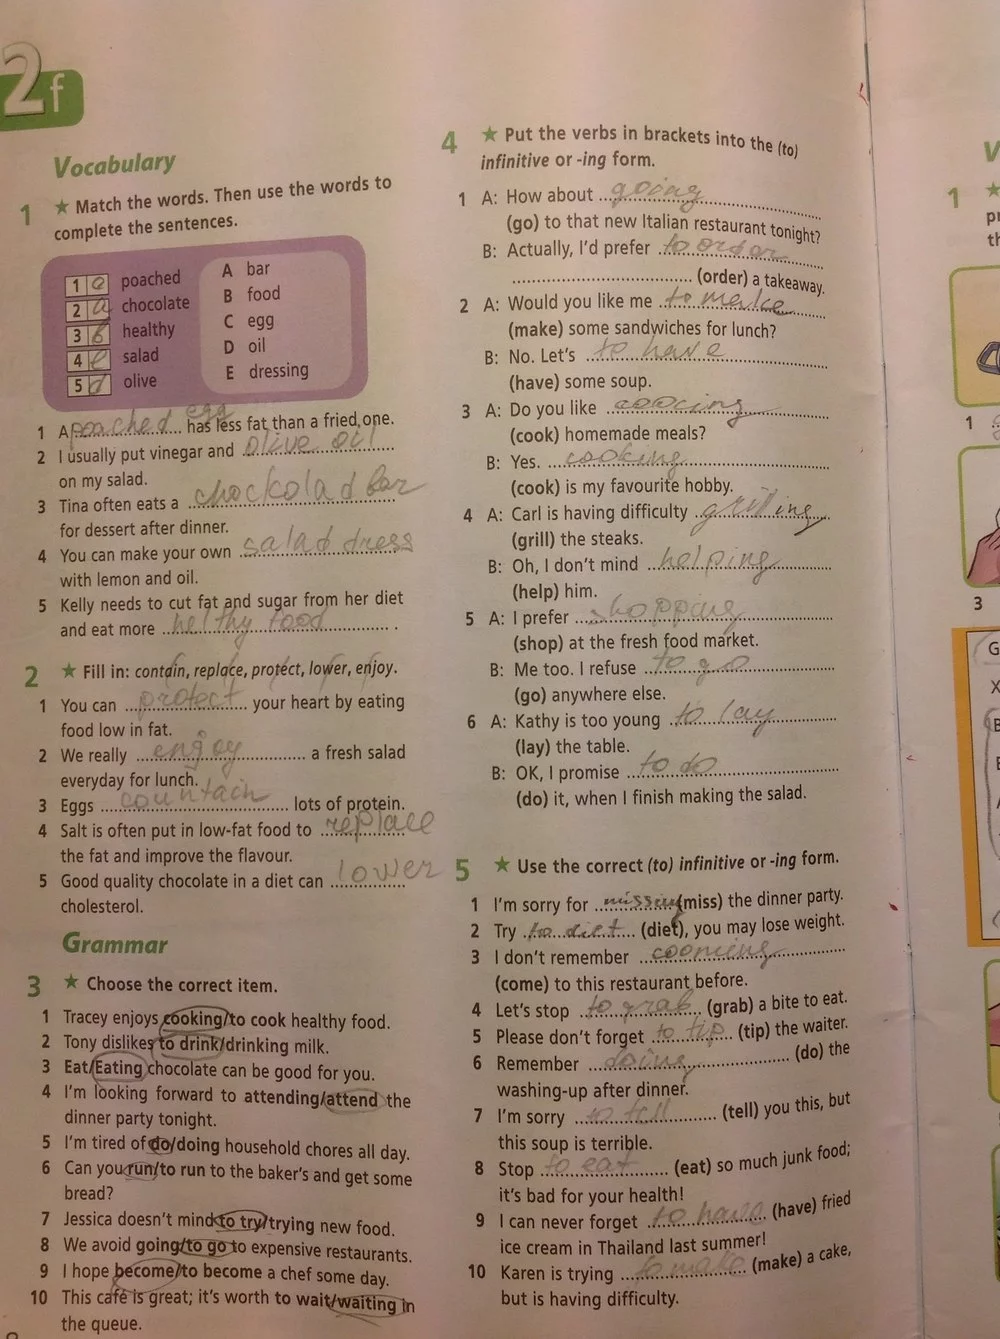 2f
Vocabulary
1 ★ Match the words. Then use the words to
complete the sentences.
1 poached
2 a chocolate
3 healthy
4 salad
5 d olive
A bar
B food
C egg
D oil
E dressing
egg
1 A poached has less fat than a fried one.
2 I usually put vinegar and olive oil
on my salad.
3 Tina often eats a chockolad bar
for dessert after dinner.
4 You can make your own salad dress
with lemon and oil.
5 Kelly needs to cut fat and sugar from her diet
and eat more helthy food .
2 ★ Fill in: contain, replace, protect, lower, enjoy.
1 You can protect your heart by eating
food low in fat.
2 We really enjoy a fresh salad
everyday for lunch.
3 Eggs countach lots of protein.
4 Salt is often put in low-fat food to replace
the fat and improve the flavour.
5 Good quality chocolate in a diet can lower
cholesterol.
Grammar
3 ★ Choose the correct item.
1 Tracey enjoys cooking/to cook healthy food.
2 Tony dislikes to drink/drinking milk.
3 Eat/Eating chocolate can be good for you.
4 I'm looking forward to attending/attend the
dinner party tonight.
5 I'm tired of do/doing household chores all day.
6 Can you run/to run to the baker's and get some
bread?
7 Jessica doesn't mind to try/trying new food.
8 We avoid going/to go to expensive restaurants.
9 I hope become/to become a chef some day.
10 This café is great; it's worth to wait/waiting in
the queue.
4 ★ Put the verbs in brackets into the (to)
infinitive or -ing form.
1 A: How about going
(go) to that new Italian restaurant tonight?
B: Actually, I'd prefer to order
(order) a takeaway.
2 A: Would you like me to make
(make) some sandwiches for lunch?
B: No. Let's to have
(have) some soup.
3 A: Do you like coocing
(cook) homemade meals?
B: Yes. cooking
(cook) is my favourite hobby.
4 A: Carl is having difficulty grilling
(grill) the steaks.
B: Oh, I don't mind helping
(help) him.
5 A: I prefer shopping
(shop) at the fresh food market.
B: Me too. I refuse to go
(go) anywhere else.
6 A: Kathy is too young to lay
(lay) the table.
B: OK, I promise to do
(do) it, when I finish making the salad.
5 ★ Use the correct (to) infinitive or -ing form.
1 I'm sorry for missing (miss) the dinner party.
2 Try to diet (diet), you may lose weight.
3 I don't remember cooming
(come) to this restaurant before.
4 Let's stop to grab (grab) a bite to eat.
5 Please don't forget to tip (tip) the waiter.
6 Remember doing (do) the
washing-up after dinner.
7 I'm sorry to tell (tell) you this, but
this soup is terrible.
8 Stop to eat (eat) so much junk food;
it's bad for your health!
9 I can never forget to have (have) fried
ice cream in Thailand last summer!
10 Karen is trying to make (make) a cake,
but is having difficulty.
V
1 ★
pr
th
1
3
G
X